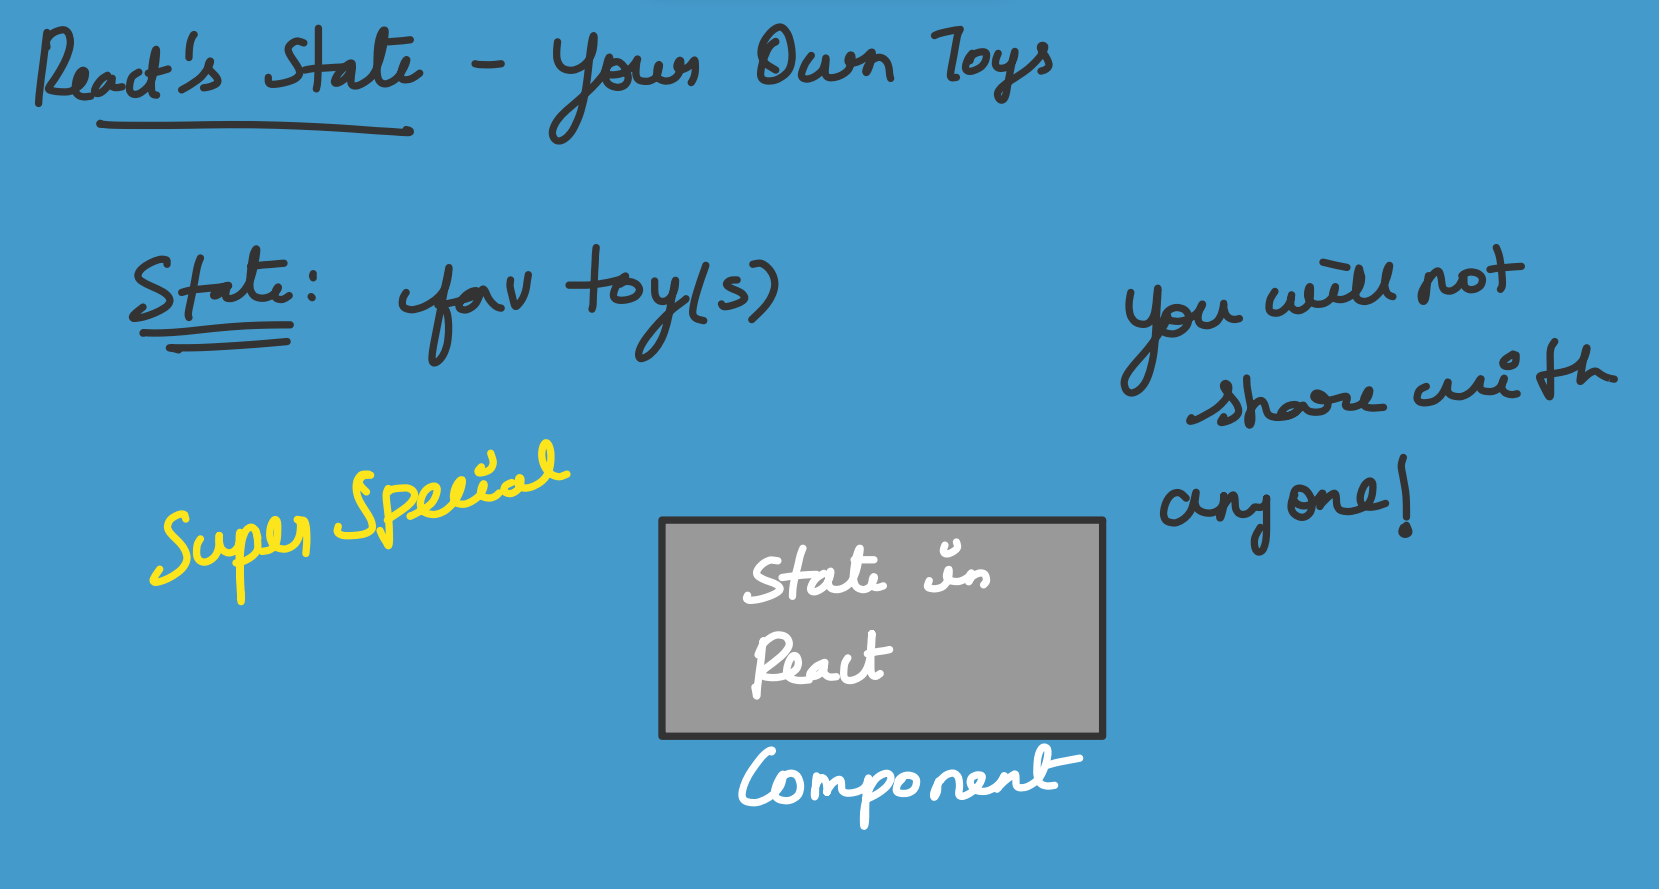 React's State - Your Own Toys
State: fav toy(s)
You will not
share with
anyone!
Super Special
State in
React
Component